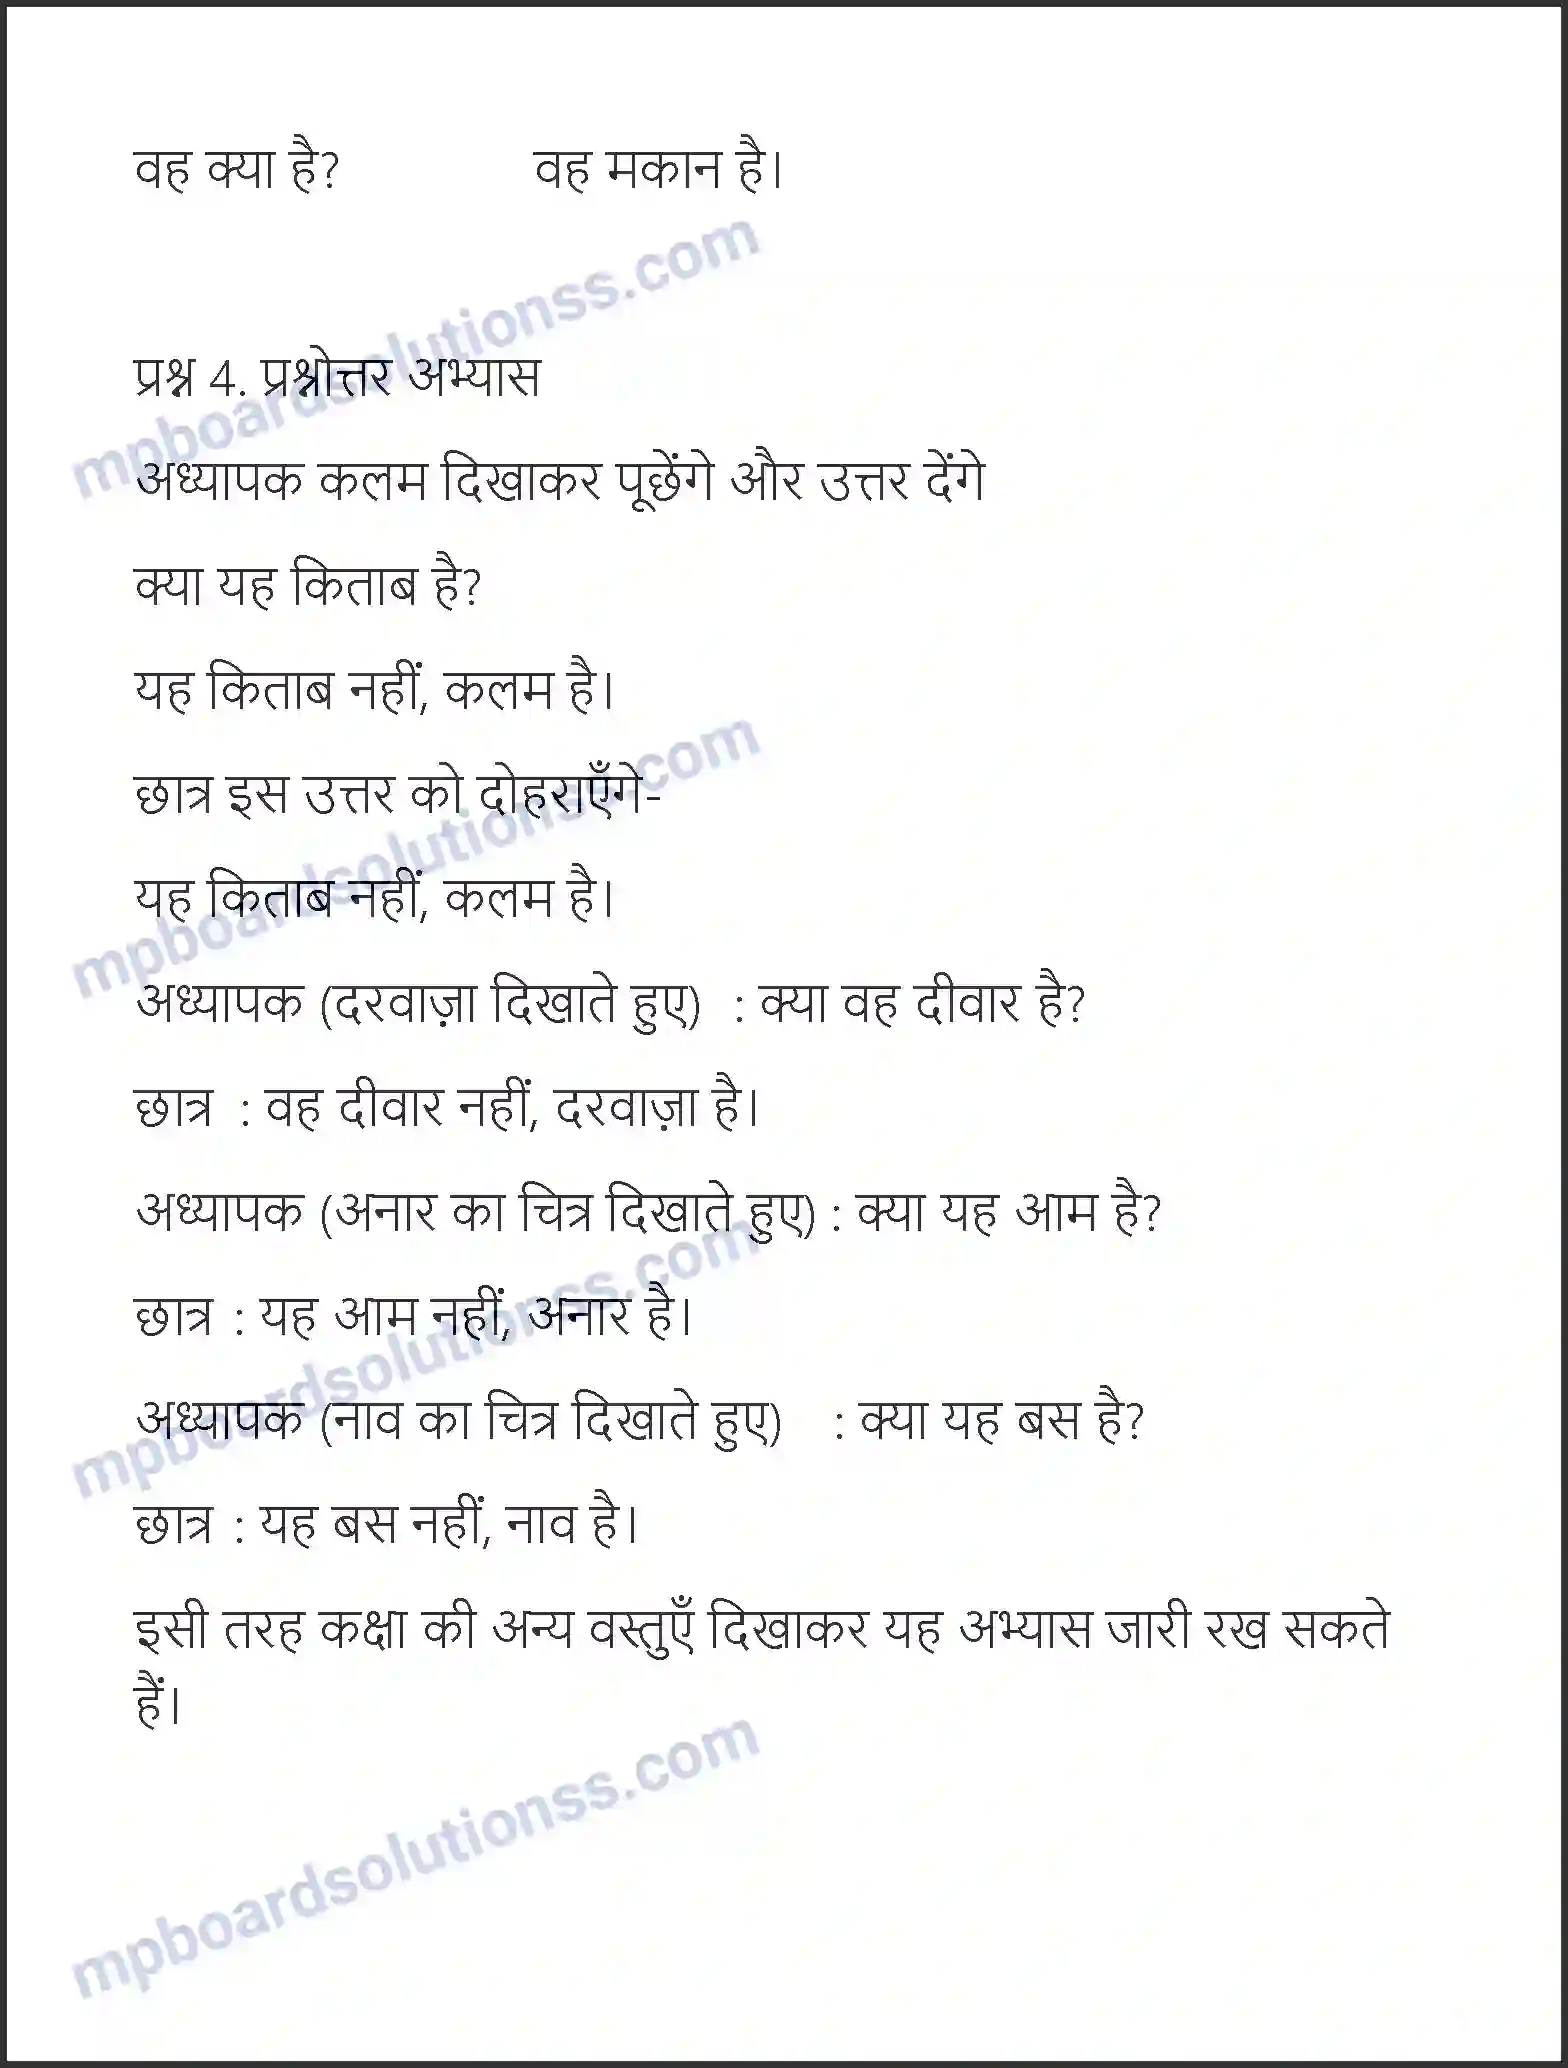 वह क्या है? वह मकान है।
mpboardsolutionss.com
प्रश्न 4. प्रश्नोत्तर अभ्यास
अध्यापक कलम दिखाकर पूछेंगे और उत्तर देंगे
क्या यह किताब है?
यह किताब नहीं, कलम है।
mpboardsolutionss.com
छात्र इस उत्तर को दोहराएँगे-
यह किताब नहीं, कलम है।
अध्यापक (दरवाज़ा दिखाते हुए) : क्या वह दीवार है?
छात्र : वह दीवार नहीं, दरवाज़ा है।
अध्यापक (अनार का चित्र दिखाते हुए) : क्या यह आम है?
mpboardsolutionss.com
छात्र : यह आम नहीं, अनार है।
अध्यापक (नाव का चित्र दिखाते हुए) : क्या यह बस है?
छात्र : यह बस नहीं, नाव है।
इसी तरह कक्षा की अन्य वस्तुएँ दिखाकर यह अभ्यास जारी रख सकते
हैं।
mpboardsolutionss.com